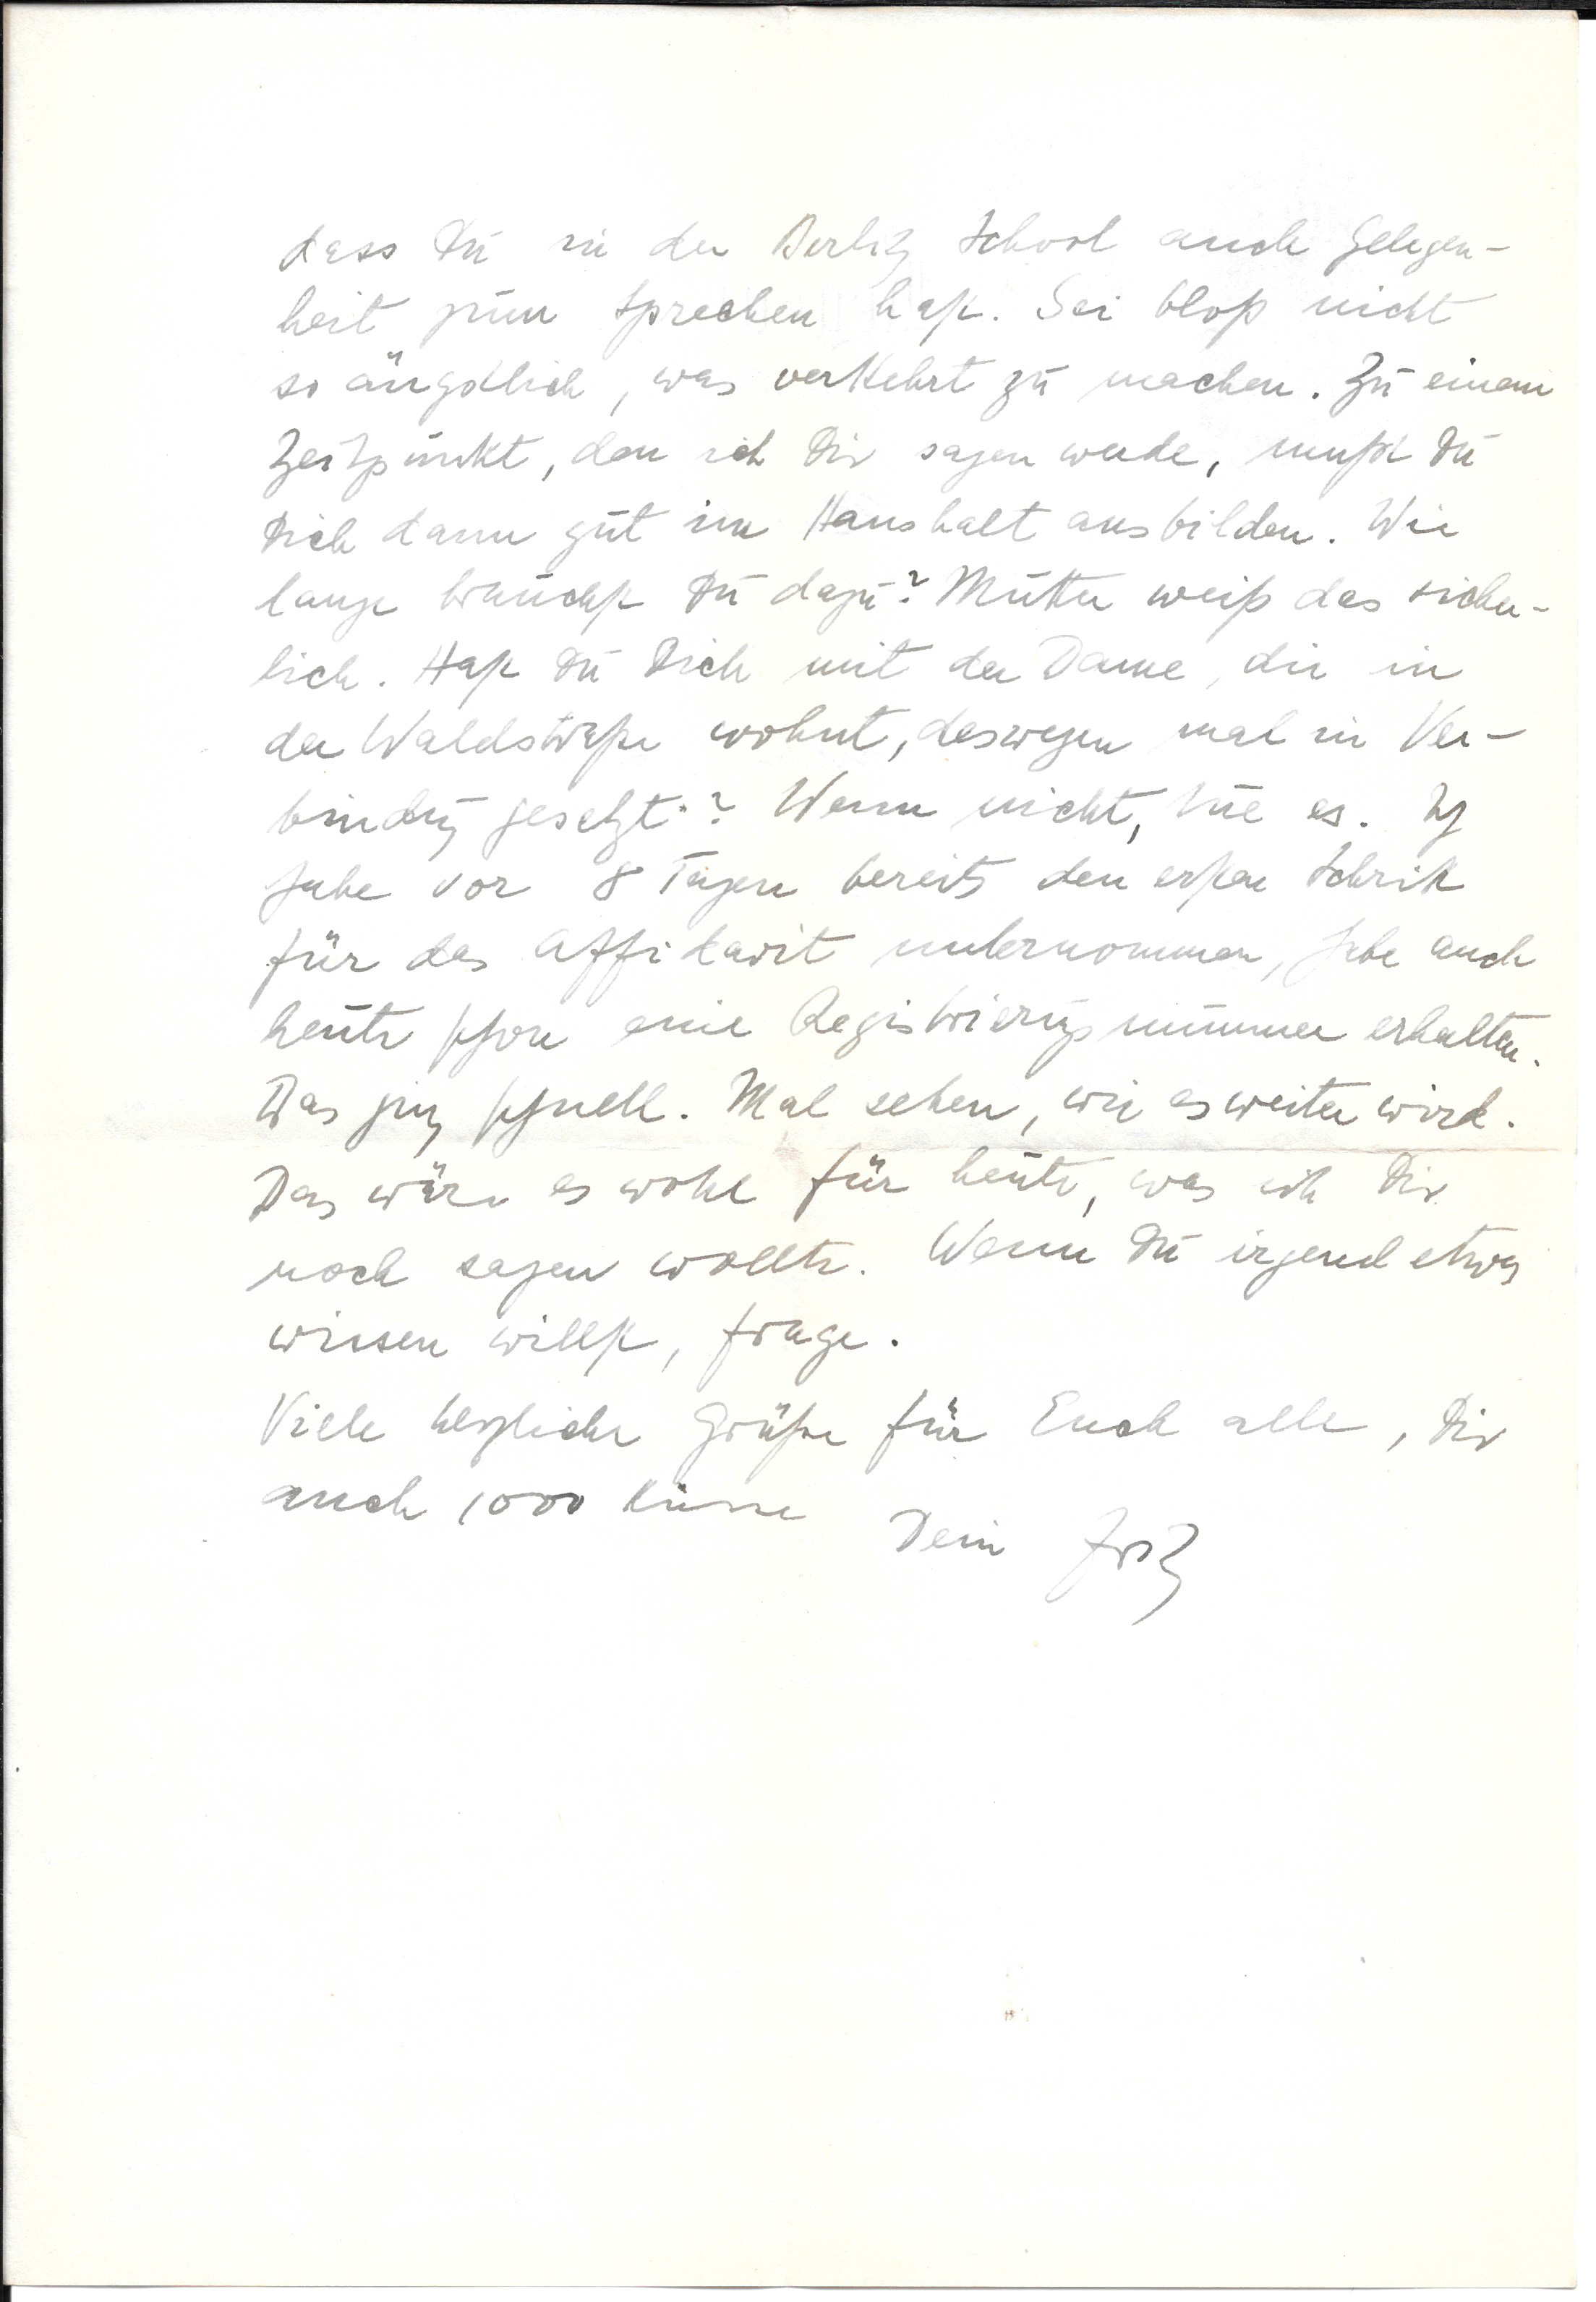 dass Du in der Berlitz School auch Gelegen-
heit zum Sprechen hast. Sei bloß nicht
so ängstlich, was verkehrt zu machen. Zu einem
Zeitpunkt, den ich Dir sagen werde, mußt Du
Dich dann gut im Haushalt ausbilden. Wie
lange brauchst Du dazu? Mutter weiß das sicher-
lich. Hast Du Dich mit der Dame, die in
der Waldstraße wohnt, deswegen mal in Ver-
bindung gesetzt? Wenn nicht, tue es. Ich
habe vor 8 Tagen bereits den ersten Schritt
für das Affidavit unternommen, habe auch
heute schon eine Registrierungsnummer erhalten.
Das ging schnell. Mal sehen, wie es weiter wird.
Das wäre es wohl für heute, was ich Dir
noch sagen wollte. Wenn Du irgend etwas
wissen willst, frage.
Viele herzliche Grüße für Euch alle, Dir
auch 1000 Küsse Dein Fritz